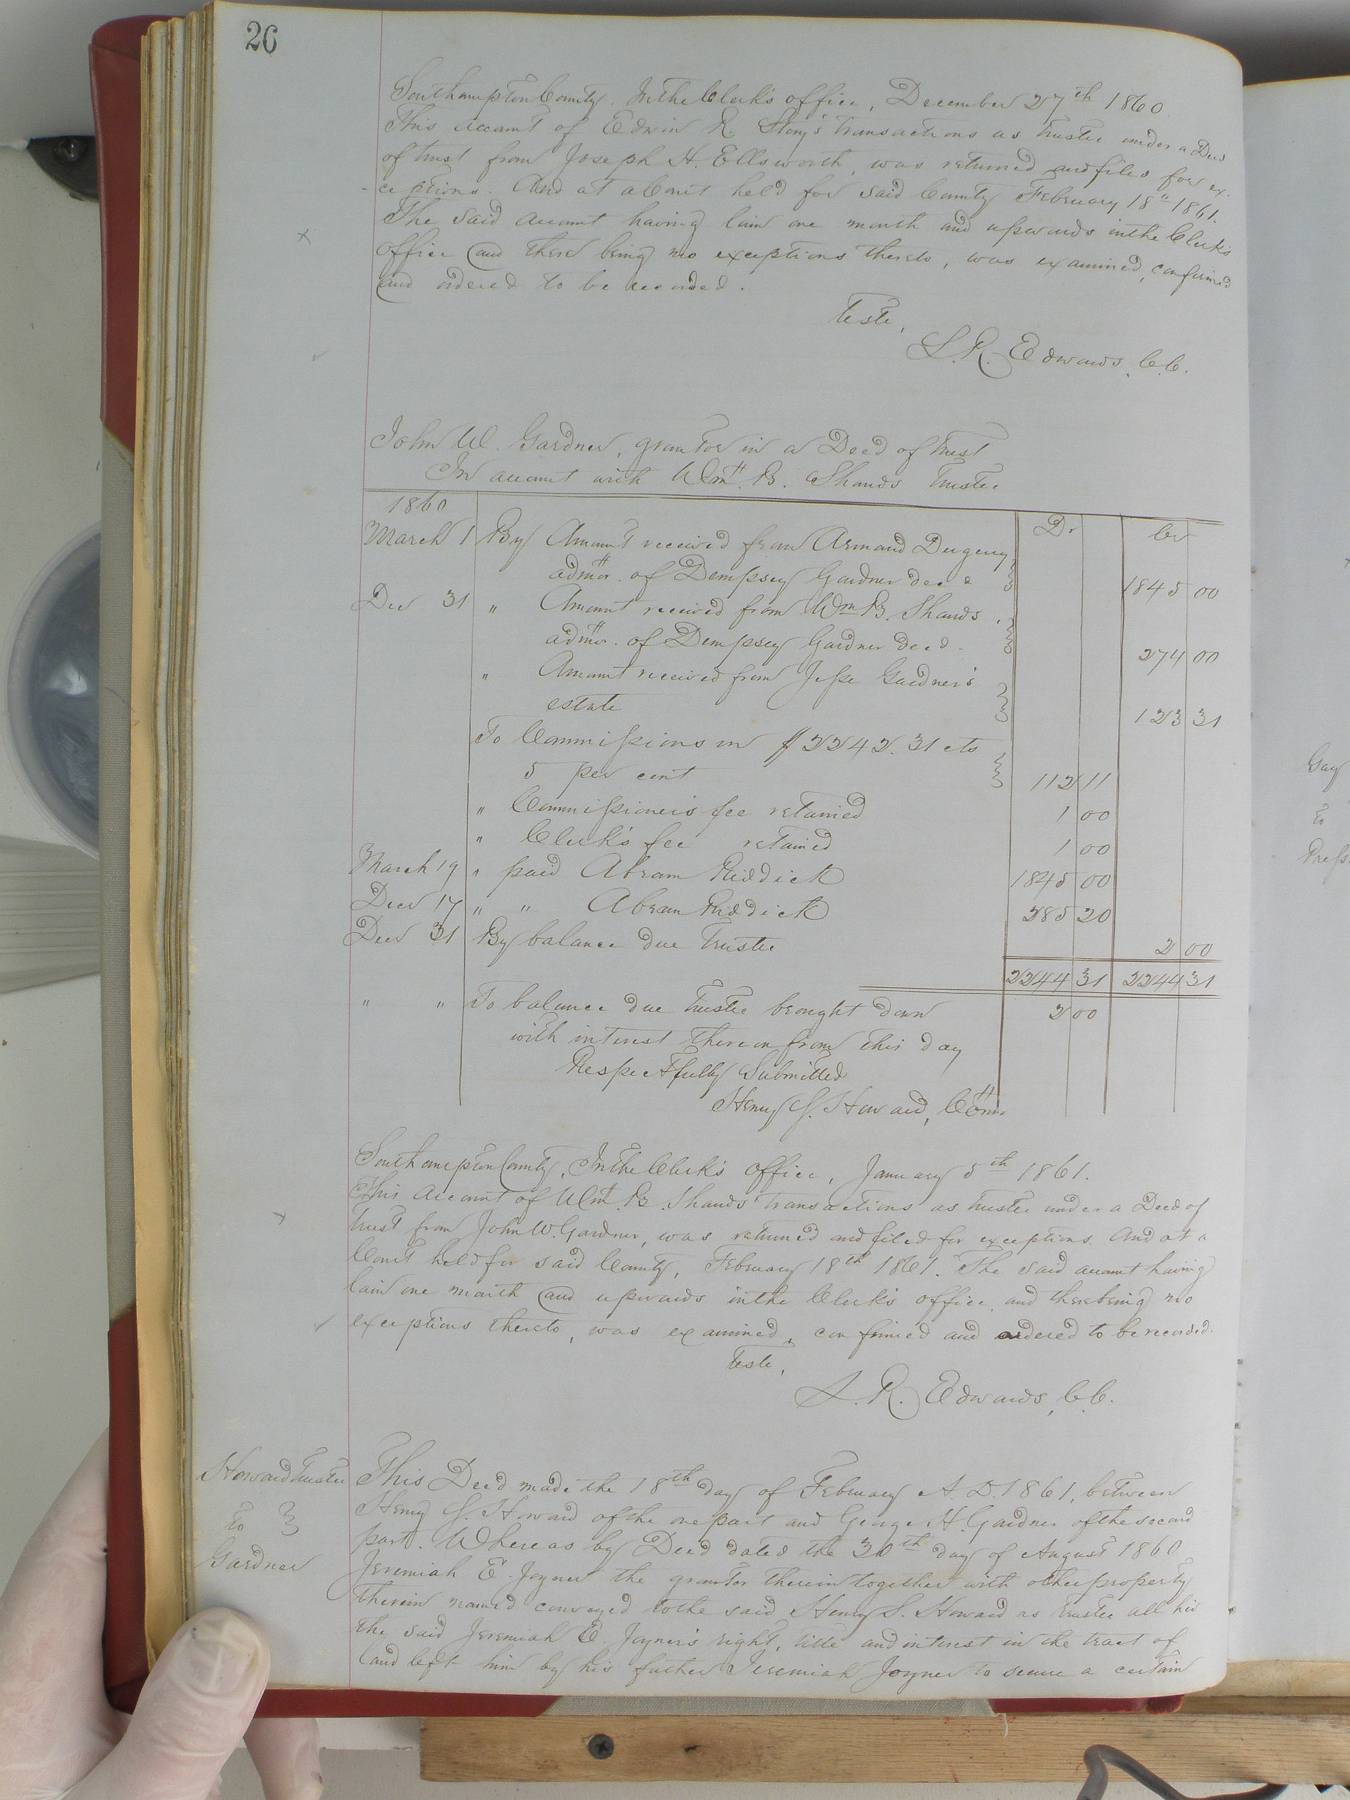 26
Southampton County. In the Clerk's office, December 27th 1860
This account of Edwin R. transactions as Trustee under a Deed
of trust from Joseph H. Ellsworth, was returned and filed for ex-
-ceptions. And at a Court held for said County February 18th 1861.
The said account having lain one month and upwards in the Clerk's
office and there being no exceptions thereto, was examined, confirmed
and ordered to be recorded.
Teste,
L. R. Edwards, C.C.
John W. Gardner, grantor in a Deed of trust
In account with Wm. B. Shands Trustee
1860 Dr Cr
March 1 By Amount received from
admr. of Dempsey Gardner decd 1845 00
Dec 31 " Amount received from Wm B. Shands
admr. of Dempsey Gardner decd. 274 00
" Amount received from Jesse Gardner's
estate 123 31
To Commissions on $2242.31 cts
5 per cent 112 11
" Commissioner's fee retained 1 00
" Clerk's fee retained 1 00
March 19 " paid Abram Riddick 1845 00
Decr 17 " " Abram Riddick 285 20
Decr 31 By balance due Trustee 2 00
2244 31 2244 31
" " To balance due Trustee brought down 2 00
with interest thereon from this day
Respectfully Submitted
Henry S. Howard, Comr.
Southampton County, In the Clerk's office, January 5th 1861.
This account of Wm. B. Shands' transactions as trustee under a Deed of
trust from John W. Gardner, was returned and filed for exceptions And at a
Court held for said County, February 18th 1861. The said account having
lain one month and upwards in the Clerk's office, and there being no
exceptions thereto, was examined, confirmed and ordered to be recorded.
Teste,
L. R. Edwards, C.C.
Howard Trustee
to
Gardner
This Deed made the 18th day of February A. D. 1861, between
Henry S. Howard of the one part and George H. Gardner of the second
part. Whereas by Deed dated the 30th day of August 1860
Jeremiah E. Joyner the grantor therein together with other property
therein named conveyed to the said Henry S. Howard as trustee all his
the said Jeremiah E. Joyner's right, title and interest in the tract of
land left him by his father Jeremiah Joyner to secure a certain
Gay
to